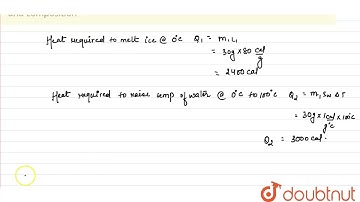 Heat required to melt ice @ 0°C Q1 = m1 L1
= 30g x 80 Cal/g
= 2400 Cal
Heat required to raise temp of water @ 0°C to 100°C Q2 = m1 Sw ΔT
= 30g x 1 Cal/g°C x 100°C
Q2 = 3000 Cal.
doubtnut